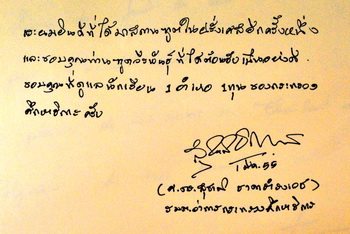 และยินดีที่ได้มาสถานทูตในฝรั่งเศสอีกครั้งหนึ่ง
และขอบคุณท่านทูตวีรพันธุ์ ที่ได้ต้อนรับเป็นอย่างดี
ขอบคุณที่ดูแลนักเรียน 1 อำเภอ 1 ทุน ของกระทรวง
ศึกษาธิการ ครับ
1 มี.ค. 55
(ศ.ดร.สุชาติ ธาดาธำรงเวช)
รัฐมนตรีว่าการกระทรวงศึกษาธิการ